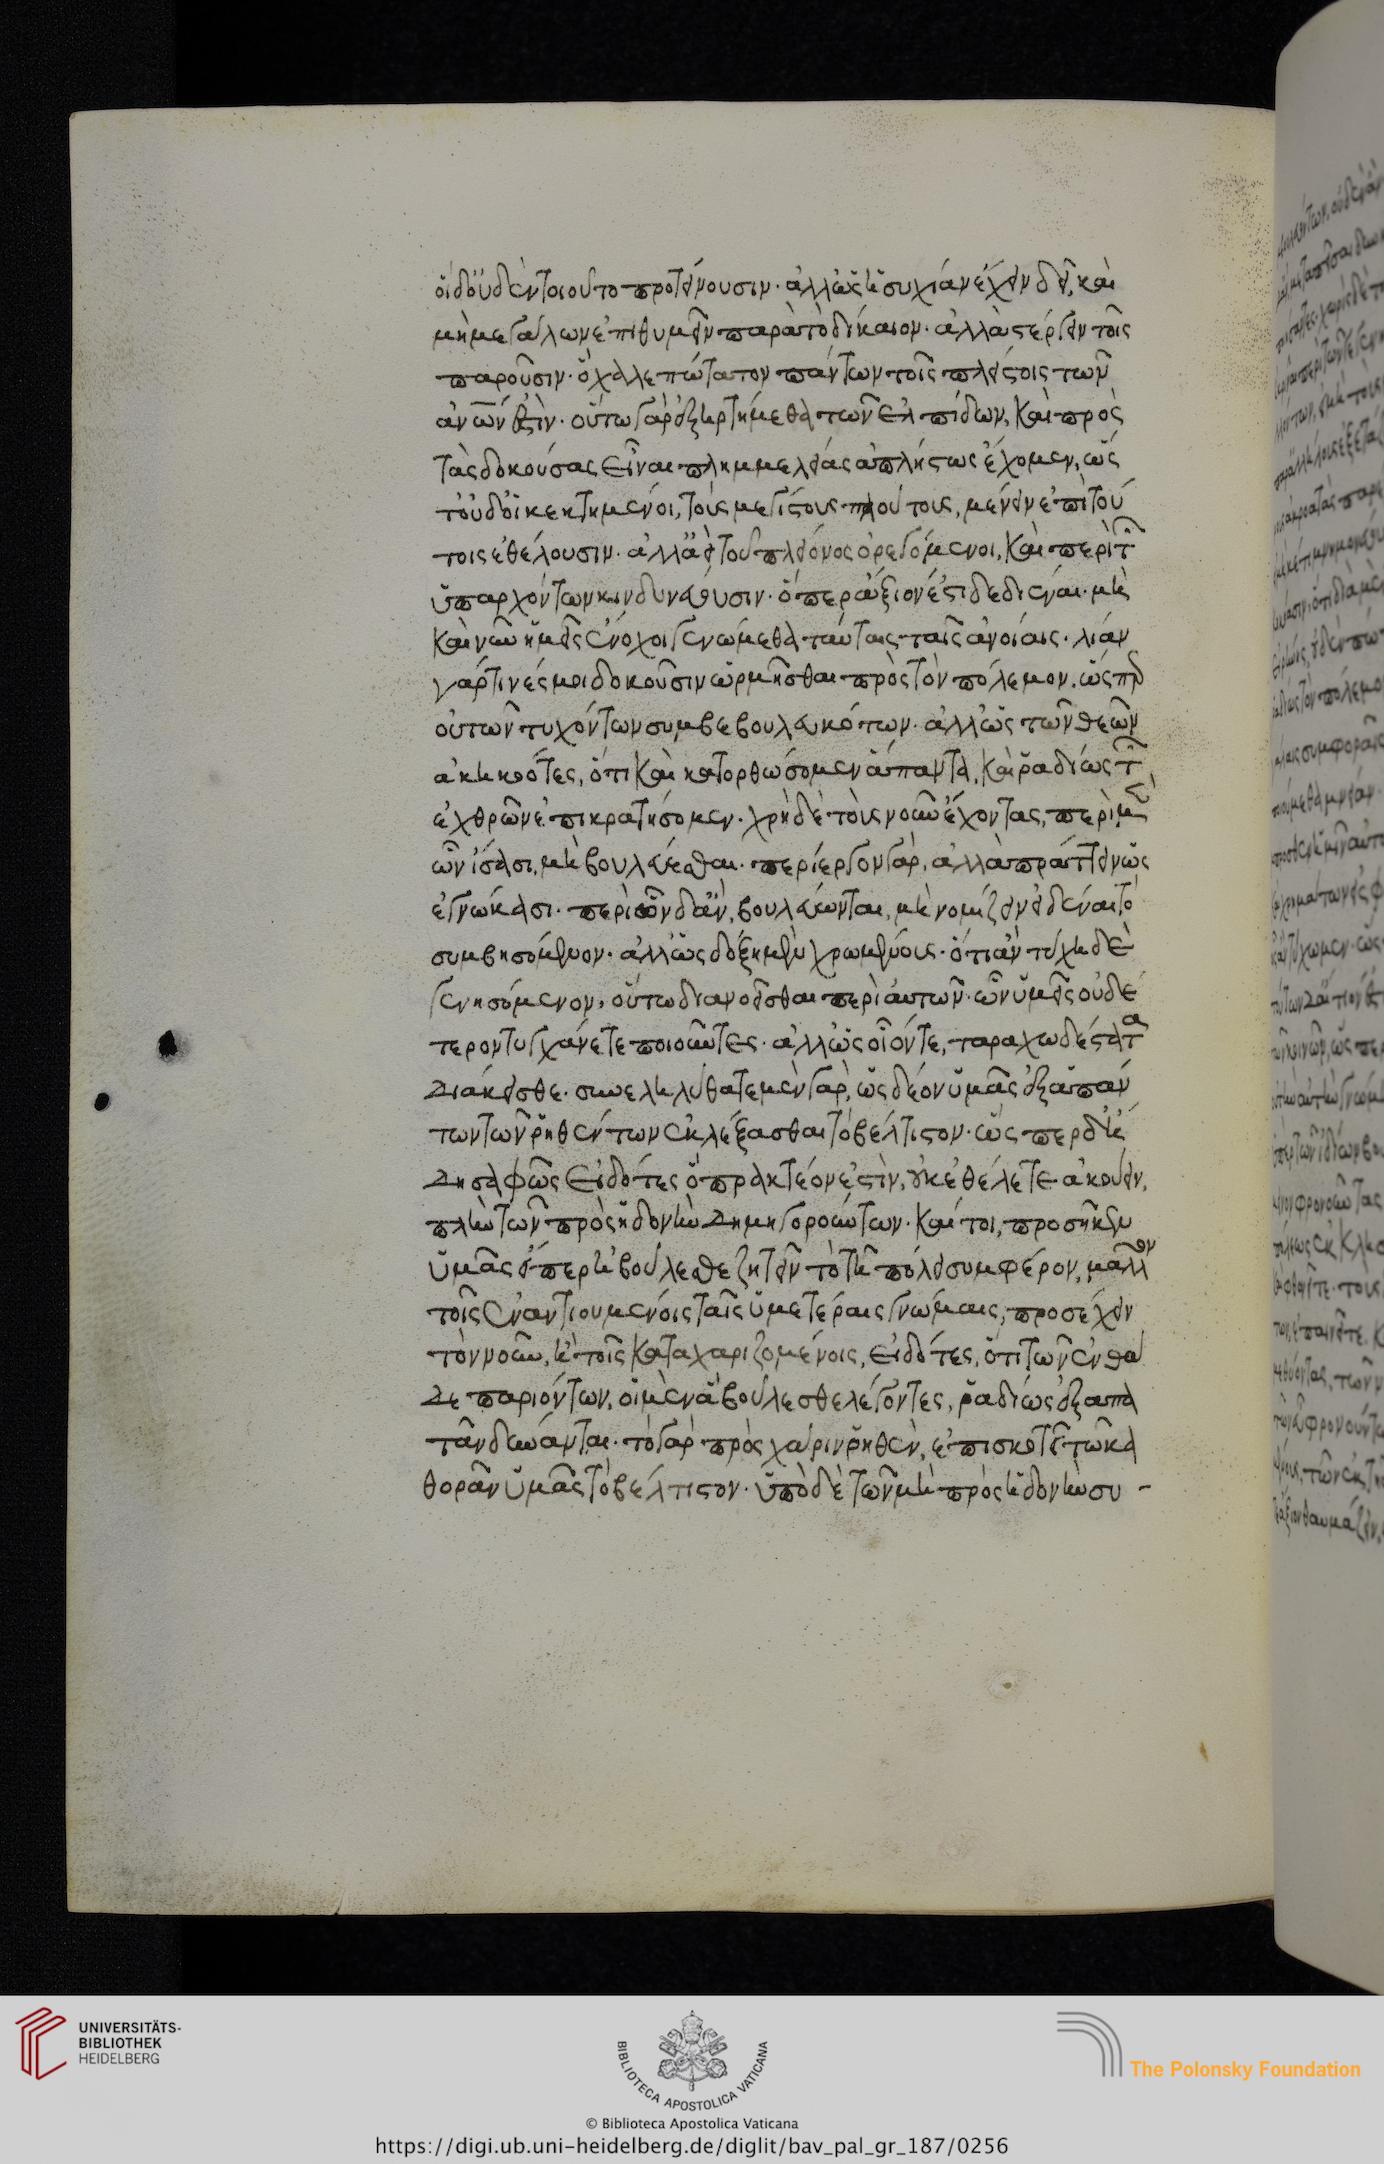 οἱ δ' οὐδὲν τοιοῦτο προτείνουσιν· ἀλλ' ὡς ἡσυχίαν ἔχειν δεῖ, καὶ
μὴ μεγάλων ἐπιθυμεῖν παρὰ τὸ δίκαιον· ἀλλὰ στέργειν τοῖς
παροῦσιν· ὃ χαλεπώτατον πάντων τοῖς πλείστοις τῶν
ἀνων ἐστίν· οὕτω γὰρ ἐξηρτήμεθα τῶν ἐλπίδων, καὶ πρὸς
τὰς δοκούσας εἶναι πλημμελείας ἀπλήστως ἔχομεν, ὥς
τ' οὐδ' οἱ κεκτημένοι, τοὺς μεγίστους πλούτους, μένειν ἐπὶ τού
τοις ἐθέλουσιν· ἀλλ' ἀεὶ τοῦ πλείονος ὀρεγόμενοι, καὶ περὶ τ
ὑπαρχόντων κινδυνεύουσιν· ὅπερ ἄξιόν ἐστι δεδιέναι· μὴ
καὶ νῦν ἡμεῖς ἔνοχοι γενώμεθα ταύταις ταῖς ἀνοίαις· λίαν
γάρ τινές μοι δοκοῦσιν ὡρμῆσθαι πρὸς τὸν πόλεμον, ὥσπερ
οὐ τῶν τυχόντων συμβεβουλευκότων· ἀλλ' ὡς τῶν θεῶν
ἀκηκοότες, ὅτι καὶ κατορθώσομεν ἅπαντα, καὶ ῥαδίως τ
ἐχθρῶν ἐπικρατήσομεν. χρὴ δὲ τοὺς νοῦν ἔχοντας, περὶ μὲν
ὧν ἴσασι, μὴ βουλεύεσθαι· περίεργον γάρ, ἀλλὰ πράττειν ὡς
ἐγνώκασι· περὶ ὧν δ' ἂν, βουλεύωνται, μὴ νομίζειν εἰδέναι τὸ
συμβησόμενον· ἀλλ' ὡς δόξῃ μὲν χρωμένους· ὅ τι ἂν τύχῃ δὲ
γενησόμενον, οὕτω διανοεῖσθαι περὶ αὐτῶν· ὧν ὑμεῖς οὐδέ
τερον τυγχάνετε ποιοῦντες· ἀλλ' ὡς οἷόν τε, ταραχωδέστατα
διάκεισθε· συνεληλύθατε μὲν γὰρ, ὡς δέον ὑμᾶς ἐξ ἁπάν
των τῶν ῥηθέντων ἐκλέξασθαι τὸ βέλτιστον· ὥσπερ δ' ἤ
δη σαφῶς εἰδότες ὃ πρακτέον ἐστὶν, οὐκ ἐθέλετε ἀκούειν,
πλὴν τῶν πρὸς ἡδονὴν δημηγορούντων· καίτοι, προσῆκεν
ὑμᾶς εἴπερ ἠβούλεσθε ζητεῖν τὸ τῇ πόλει συμφέρον, μᾶλλον
τοῖς ἐναντιουμένοις ταῖς ὑμετέραις γνώμαις, προσέχειν
τὸν νοῦν, ἢ τοῖς καταχαριζομένοις, εἰδότες, ὅτι τῶν ἐνθά
δε παριόντων, οἱ μὲν ἃ βούλεσθε λέγοντες, ῥαδίως ἐξαπα
τᾶν δύνανται· τὸ γὰρ πρὸς χάριν ῥηθὲν, ἐπισκοτεῖ τῷ κα
θορᾶν ὑμᾶς τὸ βέλτιστον· ὑπὸ δὲ τῶν μὴ πρὸς ἡδονὴν συ -
UNIVERSITÄTS-
BIBLIOTHEK
HEIDELBERG
BIBLIOTECA APOSTOLICA VATICANA
The Polonsky Foundation
© Biblioteca Apostolica Vaticana
https://digi.ub.uni-heidelberg.de/diglit/bav_pal_gr_187/0256